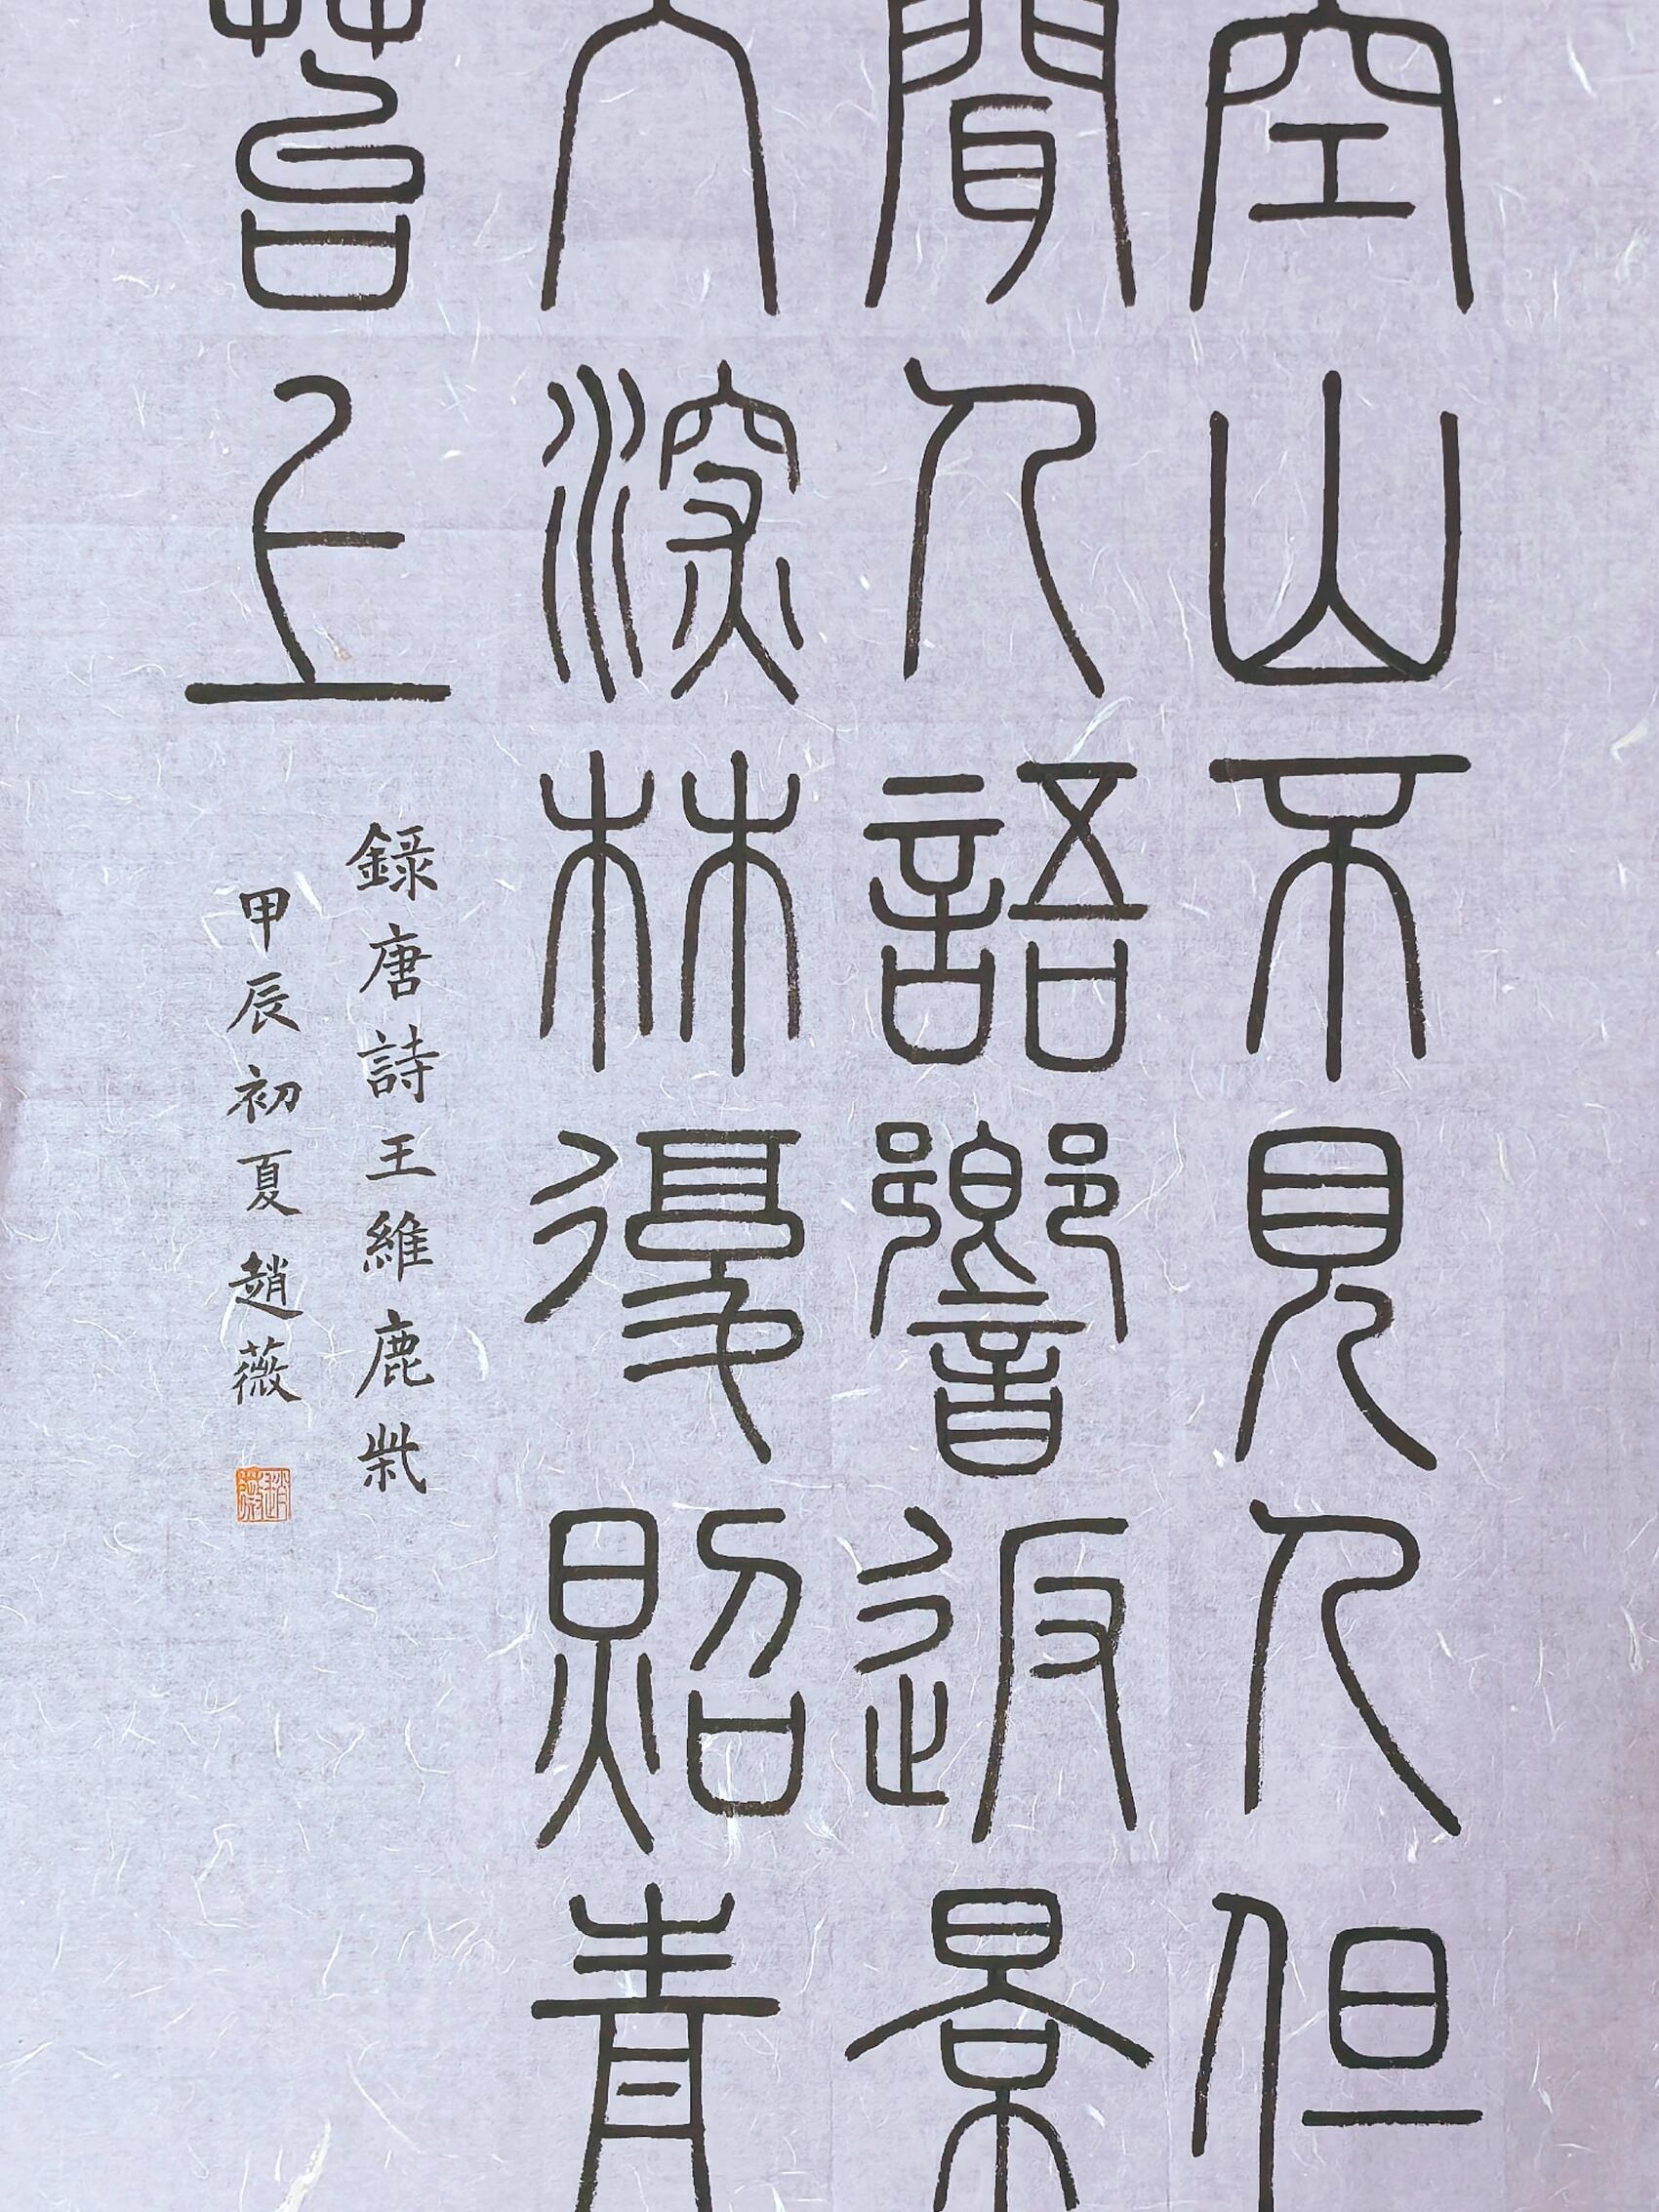 空山不見人但
聞人語響返景
入深林復照青
苔上
錄唐詩王維鹿柴
甲辰初夏趙薇
趙薇